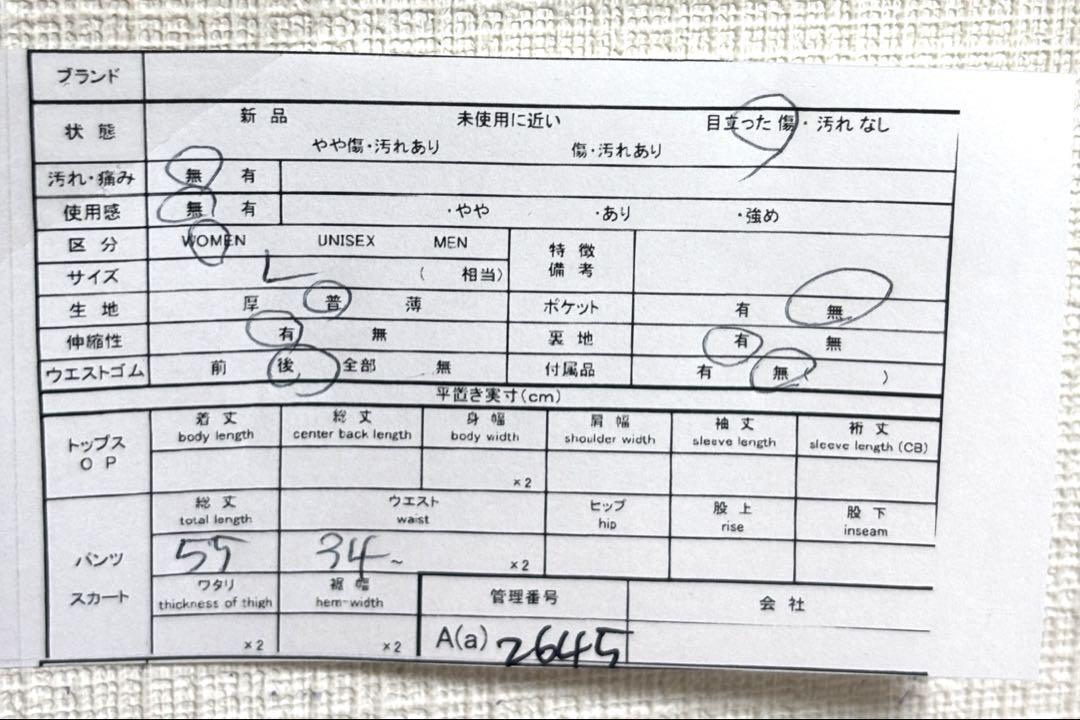 ブランド
状態 新品 未使用に近い 目立った傷・汚れなし
やや傷・汚れあり 傷・汚れあり
汚れ・痛み 無 有
使用感 無 有 ・やや ・あり ・強め
区分 WOMEN UNISEX MEN 特徴
備考
サイズ L ( 相当)
生地 厚 普 薄 ポケット 有 無
伸縮性 有 無 裏地 有 無
ウエストゴム 前 後 全部 無 付属品 有 無 ( )
平置き実寸(cm)
トップス
OP
着丈 総丈 身幅 肩幅 袖丈 裄丈
body length center back length body width shoulder width sleeve length sleeve length (CB)
×2
パンツ
スカート
総丈 ウエスト ヒップ 股上 股下
total length waist hip rise inseam
55 34~ ×2
ワタリ 裾幅 管理番号 会社
thickness of thigh hem-width
×2 ×2 A(a) 2645